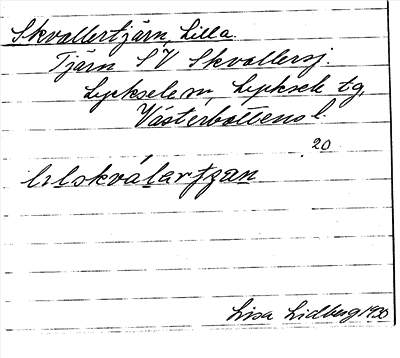 Skvallertjärn, Lilla.
Tjärn SV Skvallersj.
Lycksele sn, Lycksele tg,
Västerbottens l.
20
lilskválartzan
Lisa Lidberg 1920